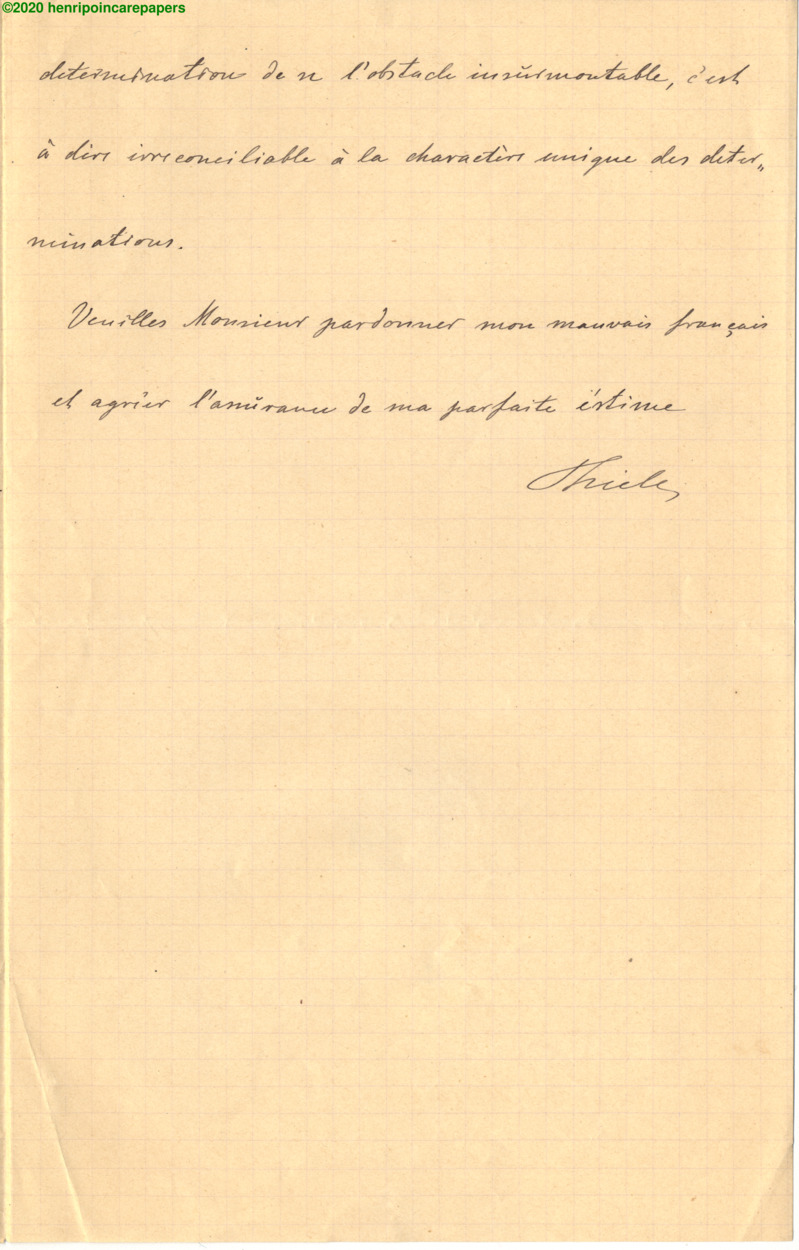 ©2020 henripoincarepapers
determination de n l'obstacle insŭrmontable, c'est
à dire irreconciliable à la charactère unique des deter„
minations.
Veuilles Monsieur pardonner mon mauvais français
et agréer l'assŭrance de ma parfaite éstime
Thiele